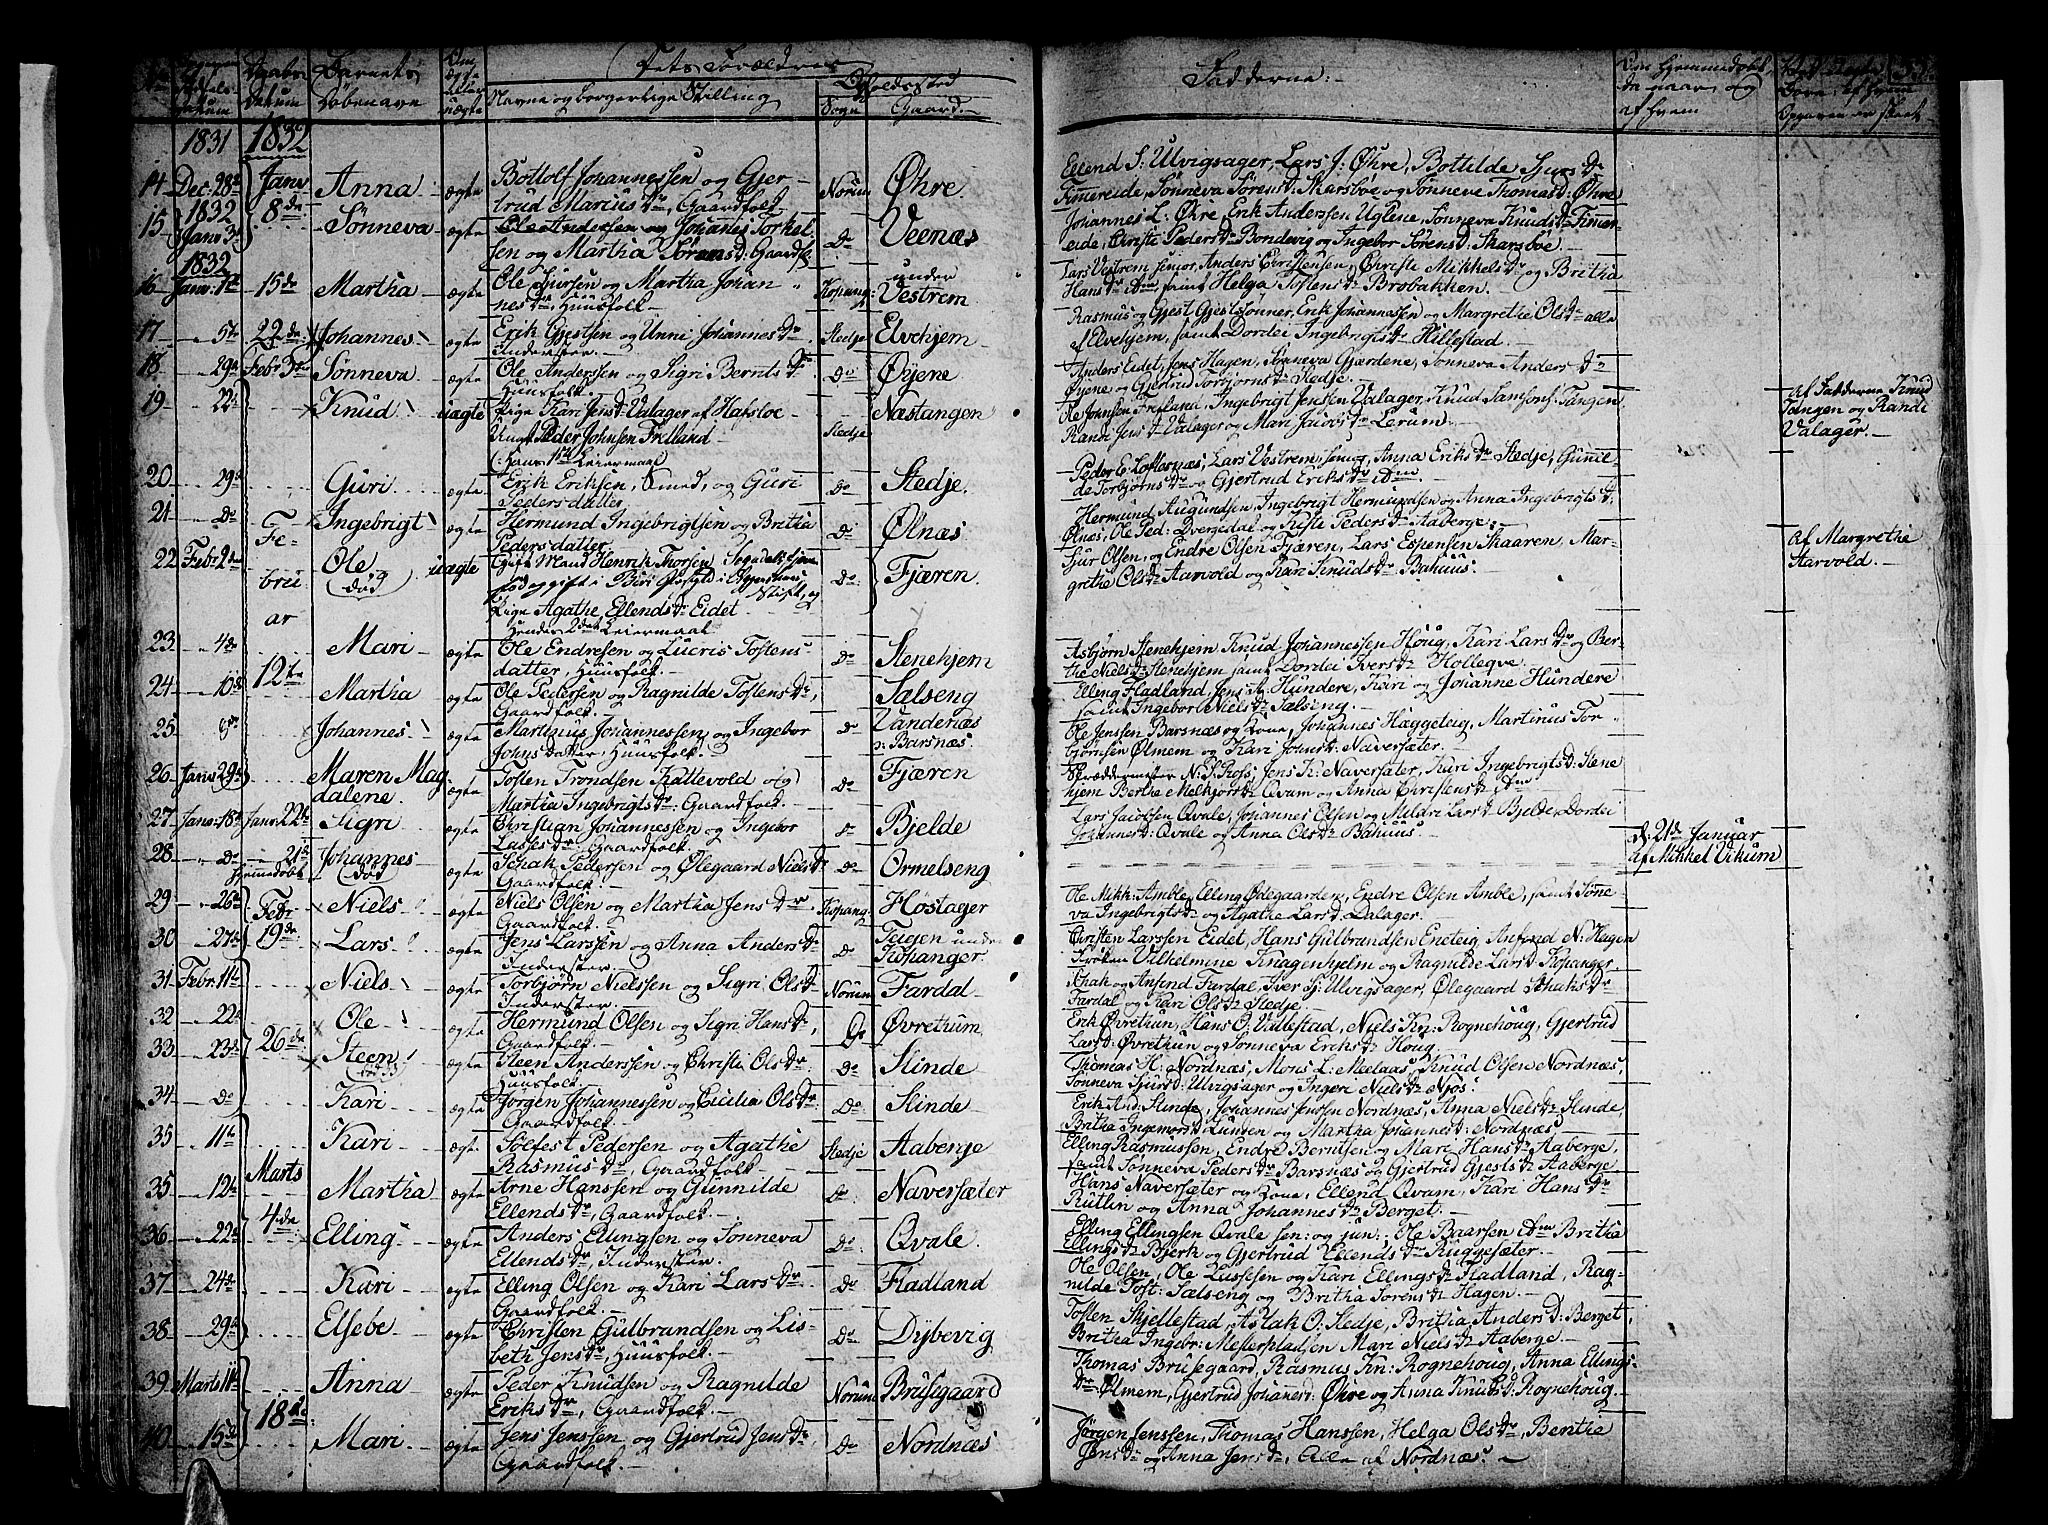 Barnets Døbenavn
Dets Forældres
Navne og borgerlige Stilling
Opholdssted
Sogn
Gaard.
Fadderne.
1831
1832
14 Dec: 28de Janv Anna ægte Bottolf Johannessen og Gjer-
trud Marcus Dr, Gaardfolk Norum Øhre
Ellend S: Ulvigsager, Lars J: Øhre, Bottilde Sjurs Dr
Timereide, Sønneva Sørensd: Skarsboe og Sønneve Thomasd: Øhre
1832
15 Janv 3de 8de Sønneva ægte Johannes Torkel
sen og Martha Sørensd: Gaardfk Do Veenæs
Johannes L: Øhre, Erik Anderssen Uglene, Sønneva Knudsdr Timer-
eide, Christi Pedersdr Bondevig og Ingebor Sørensd: Skarsboe.
1832
16 Janv: 1te 15de Martha ægte Ole Siursen og Martha Johan
nesdr, Huusfolk Kopang: under
Vestrem
Lars Vestrem senior, Anders Christensen, Christi Mikkelsdr og Britha
Hansdr ibm, samt Helga Tostensdr Brobakken.
17 5te 22de Johannes ægte Erik Gjestsen og Unni Johannes Dr
Inderster. Sledje Elvehjem
Rasmus og Gjest Gjestssønner, Erik Johannessen og Margrethe Olsdr alle
af Elvehjem, samt Dordei Ingebrigtsdr Hillestad.
18 29de Febr 3de Sønneva ægte Ole Anderssen og Sigri Bernts Dr
Huusfolk Do Øyene
Anders Eidet, Jens Hagen, Sønneva Gjærdene, Sønneva Anders Dr
Øyene og Gjertrud Torbjørnsdr Sledje.
19 22de Knud uægte Pige Kari Jensd: Valager af Hafsloe
Ungk: Peder Johnsen Frelland
Hans 1ste Leiermaal Sledje Næstangen
Ole Johnsen Frelland, Ingebrigt Jenssen Valager, Knud Samsons: Tangen
Randi Jensdr Valager og Mari Jacobsdr Lerum.
Af Fadderne Knud
Tangen og Randi
Valager.
20 29de Guri ægte Erik Eriksen, Smed, og Guri
Pedersdatter Do Sledje.
Peder E. Loftesnæs, Lars Vestrem senior, Anna Eriks Dr Sledje, Gunil-
de Torbjørnsdr og Gjertrud Eriksdr ibm
21 Do Fe- Ingebrigt ægte Hermund Ingebrigtsen og Britha
Pedersdatter Do Ølnæs
Hermund Augundsen, Ingebrigt Hermundsen og Anna Ingebrigtsd:
Ølnæs, Ole Ped: Dvergedal og Kisti Pedersdr Aaberge.
22 Febr 2de bru Ole
(død) uægte Gift Mand Henrik Thorsen
Pige Agathe Ellends Dr Eidet
Hendes 2det Leiermaal Do Fjæren
Sjur Olsen, og Endre Olsen Fjæren, Lars Espensen Skaaren, Mar-
grethe Olsdr Aarvold og Kari Knudsdr Bahuus.
Af Margrethe
Aarvold
ar
23 4de Mari ægte Ole Endresen og Lucris Tostens-
datter, Huusfolk Do Stenehjem
Asbjørn Stenehjem Knud Johannessen Houg, Kari Lars Dr og Ber-
the Nielsdr Stenehjem samt Dordei Iversdr Holleqve
24 10de 12te Martha ægte Ole Pedersen og Ragnilde Tostensdr,
Gaardfolk. Sælseng
Elling Fladland, Jens A: Hundere, Kari og Johanne Hundere
samt Ingebor Nielsdr Sælseng.
25 8de Johannes ægte Martinus Johannessen og Ingebor
Johnsdatter, Huusfolk Do Vandenæs
v: Barsnæs
Ole Jenssen Barsnæs og Kone, Johannes Hæggeteig, Martinus Tor-
bjørnsen Ølmem og Kari Johnsd: Naversæter.
26 Janv 29de Maren Mag
dalene ægte Tosten Trondsen Kattevold og
Martha Ingebrigtsdr: Gaardfolk Do Fjæren
Skræddermester N: S. Ross, Jens K: Naversæter, Kari Ingebrigtsd: Stene
hjem Berthe Melkjørsdr Qvam og Anna Christensdr ibm
27 Janv: 18de Janv: 22de Sigri ægte Christian Johannessen og Ingebor
Lassesdr: Gaardfolk Do Bjelde
Lars Jacobsen Qvale, Johannes Olsen og Mildri Larsdr Bjelde Dordei
Johannesd: Qvale og Anna Olsdr Bahuus.
28 Do 21de
hjemmedøbt Johannes
(død) ægte Schak Pedersen og Ølegaard Nielsdr
Gaardfolk Do Ormelseng
d: 21de Januar
af Mikkel Vikum
29 26de Febr Niels ægte Niels Olsen og Martha Jens Dr
Gaardfolk Kopang: Høstager
Ole Mikk: Amble, Elling Ødegaarden, Endre Olsen Amble, samt Sønne
va Ingebrigtsdr og Agathe Larsd: Lalager.
30 27de 19de Lars ægte Jens Larssen og Anna Andersdr
Inderster. Do Teigen under
Kopanger
Christen Larssen Eidet, Hans Gulbrandsen Eneteig, Anfind N: Hagen
Frøken Vilhelmine Knagenhjelm og Ragnilde Larsd: Kopanger.
31 Febr: 11te Niels ægte Torbjørn Nielssen og Sigri Olsdr
Inderster. Norum Fardal
Schak og Anfind Fardal Iver Sj: Ulvigsager, Ølegaard Schaks Dr
Fardal og Kari Olsdr Sledje.
32 22de Ole ægte Hermund Olsen og Sigri Hansdr,
Gaardfolk Do Øvrethum
Erik Øvrethun, Hans O: Vallestad, Niels Kn: Rognehoug, Gjertrud
Larsd: Øvrethun og Sønneva Eriksdr Houg.
33 23de 26de Steen ægte Steen Anderssen og Christi Ols Dr
Huusfolk Do Slinde
Thomas H: Nordnæs, Mons L. Meelaas, Knud Olsen Nordnæs,
Sønneva Sjursdr Ulvigsager og Ingeri Nielsdr Njøs.
34 Do Kari ægte Jørgen Johannessen og Cicilia Olsdr
Gaardfolk Do Slinde
Erik And: Slinde, Johannes Jenssen Nordnæs, Anna Nielsdr Slinde,
Britha Ingemorsd: Lunden og Martha Johannesd: Nordnæs.
35 11te Kari ægte Solfest Pedersen og Agathe
Rasmus Dr, Gaardfolk Sledje Aaberge
Elling Rasmussen, Endre Berntsen og Mari Hansdr Aaberge,
samt Sønneva Pedersdr Barsnæs og Gjertrud Gjestsdr Aaberge
35 12te Marts Martha ægte Arne Hanssen og Gunnilde
Ellends Dr, Gaardfolk. Do Naversæter
Hans Naversæter og Kone, Ellend Qvam, Kari Hans Dr
Rutlin og Anna Johannesdr Berget.
36 22de 4de Elling ægte Anders Ellingsen og Sønneva
Ellends Dr, Inderster. Do Qvale.
Elling Ellingsen Qvale sen: og jun: Ole Baarsen ibm Britha
Ellingsdr Bjerk og Gjertrud Ellendsdr Ruggesæter.
37 24de Kari ægte Elling Olsen og Kari Lars Dr
Gaardfolk. Do Fladland
Ole Olsen, Ole Lussesen og Kari Ellingsdr Fladland, Rag-
nilde Tost: Sælseng og Britha Sørensdr Hagen.
38 29de Elsebe ægte Christen Gulbrandsen og Lis
beth Jensdr, Huusfolk. Do Dybevig
Tosten Skjellestad, Aslak O: Sledje, Britha Andersd: Berget,
Britha Ingebr: Mesterpladsen Mari Nielsdr Aaberge
39 Marts 11te Anna ægte Peder Knudsen og Ragnilde
Eriks Dr, Gaardfolk. Norum Brusegaard
Thomas Brusegaard, Rasmus Kn: Rognehoug, Anna Ellings-
dr Ølmem, Gjertrud Johanesd: Øhre og Anna Knudsd: Rognehoug.
40 15de 18de Mari ægte Jens Jenssen og Gjertrud Jensdr,
Gaardfolk. Do Nordnæs
Jørgen Jenssen, Thomas Hanssen, Helga Olsdr, Berithe
Jensdr og Anna Jensdr, Alle af Nordnæs.